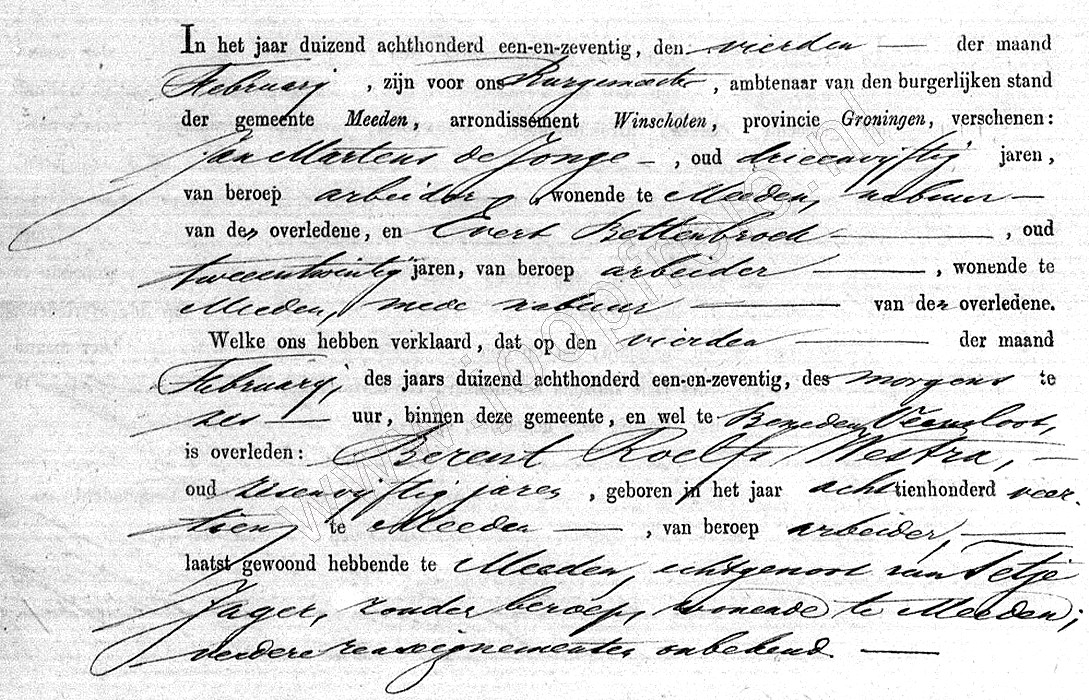 In het jaar duizend achthonderd een-en-zeventig, den vierden — der maand
Februarij, zijn voor ons Burgemeester, ambtenaar van den burgerlijken stand
der gemeente Meeden, arrondissement Winschoten, provincie Groningen, verschenen:
Jan Martens de Jonge —, oud drieenvijftig jaren,
van beroep arbeider, wonende te Meeden, nabuur —
van den overledene, en Evert Bettenbroek —, oud
tweeentwintig jaren, van beroep arbeider —, wonende te
Meeden, mede nabuur — van den overledene.
Welke ons hebben verklaard, dat op den vierden — der maand
Februarij, des jaars duizend achthonderd een-en-zeventig, des morgens te
zes — uur, binnen deze gemeente, en wel te Beneden Veensloot,
is overleden: Berent Roelfs Westra, —
oud zesenvijftig jaren, geboren in het jaar achttienhonderd veer-
tien, te Meeden —, van beroep arbeider, —
laatst gewoond hebbende te Meeden, echtgenoot van Tetje
Jager, zonder beroep, wonende te Meeden;
verdere renseignementen onbekend. —
www.joopfmvp.nl